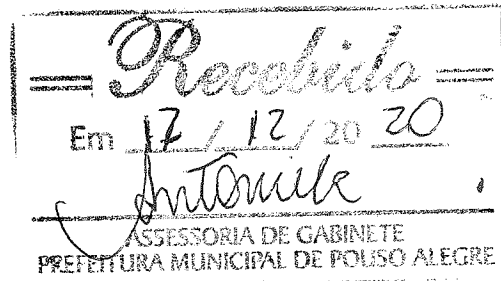 Recebido
Em 17 / 12 / 20 20
ASSESSORIA DE GABINETE
PREFEITURA MUNICIPAL DE POUSO ALEGRE